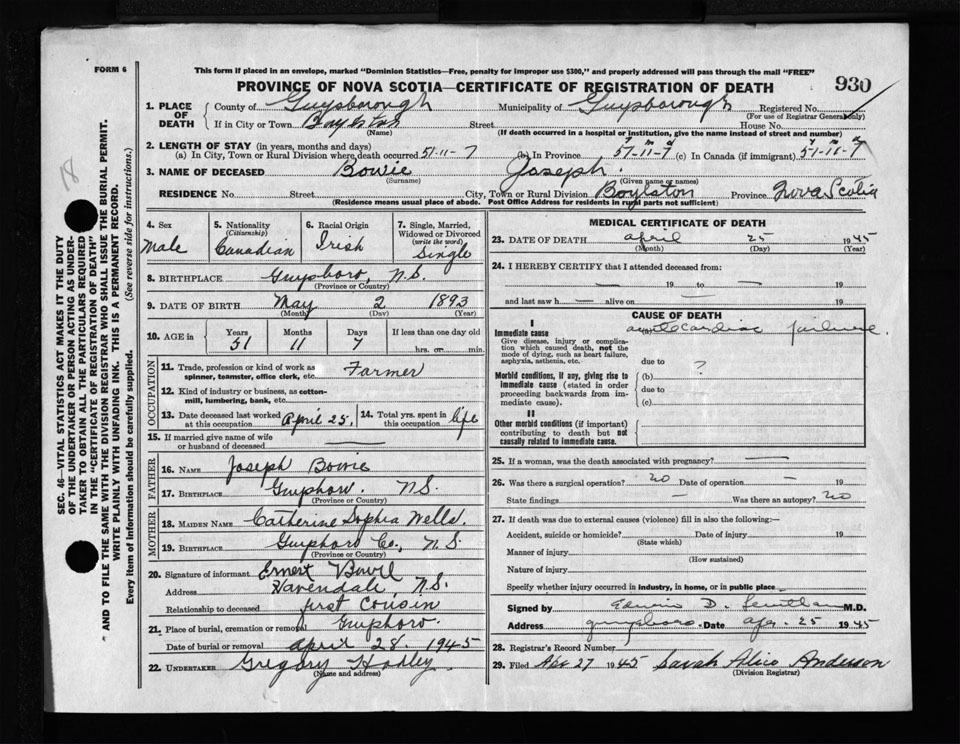 FORM 6
This form if placed in an envelope, marked "Dominion Statistics—Free, penalty for improper use $300," and properly addressed will pass through the mail "FREE"
PROVINCE OF NOVA SCOTIA—CERTIFICATE OF REGISTRATION OF DEATH
930
1. PLACE OF DEATH
County of Guysborough Municipality of Guysborough Registered No.
(For use of Registrar General only)
If in City or Town Boylston Street House No.
(Name) (If death occurred in a hospital or institution, give the name instead of street and number)
2. LENGTH OF STAY (in years, months and days)
(a) In City, Town or Rural Division where death occurred 51-11-7 (b) In Province 51-11-7 (c) In Canada (if immigrant) 51-11-7
3. NAME OF DECEASED Bowie Joseph
(Surname) (Given name or names)
RESIDENCE No. Street City, Town or Rural Division Boylston Province Nova Scotia
(Residence means usual place of abode. Post Office Address for residents in rural parts not sufficient)
18
SEC. 46—VITAL STATISTICS ACT MAKES IT THE DUTY
OF THE UNDERTAKER OR PERSON ACTING AS UNDER-
TAKER TO OBTAIN ALL THE PARTICULARS REQUIRED
IN THE "CERTIFICATE OF REGISTRATION OF DEATH"
AND TO FILE THE SAME WITH THE DIVISION REGISTRAR WHO SHALL ISSUE THE BURIAL PERMIT.
WRITE PLAINLY WITH UNFADING INK. THIS IS A PERMANENT RECORD.
Every item of information should be carefully supplied. (See reverse side for instructions.)
4. Sex Male
5. Nationality (Citizenship) Canadian
6. Racial Origin Irish
7. Single, Married, Widowed or Divorced (write the word) Single
8. BIRTHPLACE Guysboro, N.S.
(Province or Country)
9. DATE OF BIRTH May 2 1893
(Month) (Day) (Year)
10. AGE in Years 51 Months 11 Days 7 If less than one day old hrs. or min.
OCCUPATION
11. Trade, profession or kind of work as spinner, teamster, office clerk, etc. Farmer
12. Kind of industry or business, as cotton-mill, lumbering, bank, etc.
13. Date deceased last worked at this occupation April 25,
14. Total yrs. spent in this occupation life
15. If married give name of wife or husband of deceased —
FATHER
16. NAME Joseph Bowie
17. BIRTHPLACE Guysboro. N.S.
(Province or Country)
MOTHER
18. MAIDEN NAME Catherine Sophia Wells.
19. BIRTHPLACE Guysboro Co., N.S.
(Province or Country)
20. Signature of informant Ernest
Address N.S.
Relationship to deceased first Cousin
21. Place of burial, cremation or removal Guysboro.
Date of burial or removal April 28. 1945
22. UNDERTAKER Gregory Hadley.
(Name and address)
MEDICAL CERTIFICATE OF DEATH
23. DATE OF DEATH April 25 1945
(Month) (Day) (Year)
24. I HEREBY CERTIFY that I attended deceased from:
— 19 to — 19
and last saw h — alive on — 19
CAUSE OF DEATH
I
Immediate cause (a) acute cardiac failure.
Give disease, injury or complication which caused death, not the mode of dying, such as heart failure, asphyxia, asthenia, etc.
due to
Morbid conditions, if any, giving rise to immediate cause (stated in order proceeding backwards from immediate cause). (b) ?
due to
(c)
II
Other morbid conditions (if important) contributing to death but not causally related to immediate cause.
25. If a woman, was the death associated with pregnancy? —
26. Was there a surgical operation? no Date of operation —
State findings — Was there an autopsy? no
27. If death was due to external causes (violence) fill in also the following:—
Accident, suicide or homicide? Date of injury 19
(State which)
Manner of injury
(How sustained)
Nature of injury
Specify whether injury occurred in industry, in home, or in public place
Signed by Edwin D. M.D.
Address guysboro Date Apr. 25 1945
28. Registrar's Record Number
29. Filed Apr 27 1945 Sarah Alice Anderson
(Division Registrar)